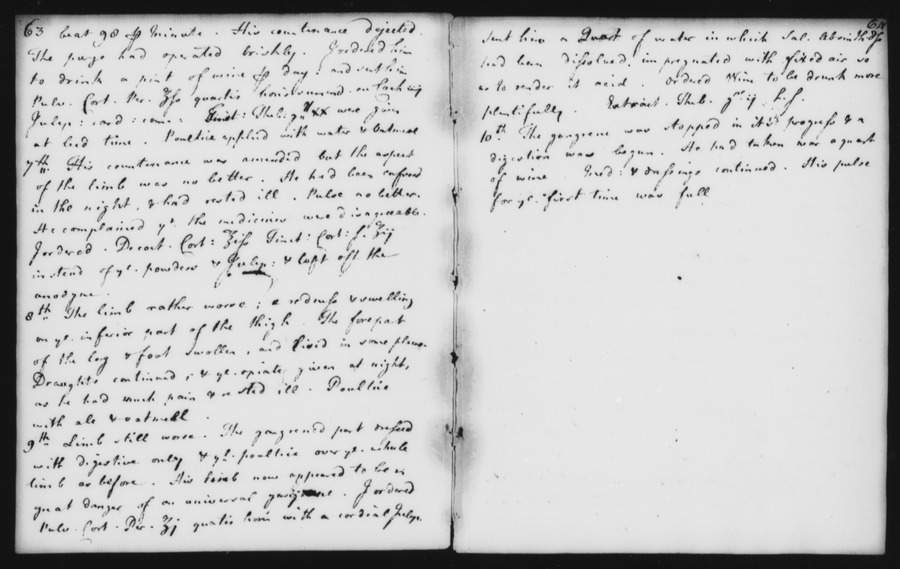 63 beat 98 ℔ minute. His countenance dejected.
The purge had operated briskly. I ordered him
to drink a pint of wine ℔ day: and sent him
Pulv. Cort. Per. Ʒſs quartis horis sumend. ex Coch: iij
Julep: card: com: Tinct: Theb: gtt XX were given
at bed time. Poultice applied with water & oatmeal
7th His countenance was amended but the aspect
of the limb was no better. He had been confused
in the night, & had rested ill. Pulse no better.
He complained yt. the medicines were disagreeable.
I ordered. Decoct. Cort: Tinct: Cort:
instead of ye. powders & Julep: & left off the
anodyne.
8th The limb rather worse; a redness & swelling
on ye. inferior part of the thigh. The fore part
of the leg & foot swollen, and livid in some places
Draughts continued, & ye. opiate given at night,
as he had much pain & rested ill. Poultice
with ale & oatmeal.
9th Limb still worse. The gangrened part dressed
with digestive only & ye. poultice over ye. whole
limb as before. His limb now appeared to be in
great danger of an universal gangrene. I ordered
Pulv. Cort. Per. Ʒj quartis horis with a cordial Julep.
64
sent him a Quart of water in which Sal. Absinth. Ʒſs
had been dissolved, impregnated with fixed air so
as to render it acid. Ordered Wine to be drunk more
plentifully. Extract. Theb. gr ij h. s.
10th The gangrene was stopped in its progress & a
digestion was begun. He had taken near a quart
of wine. Med: & dressings continued. His pulse
for ye. first time was full